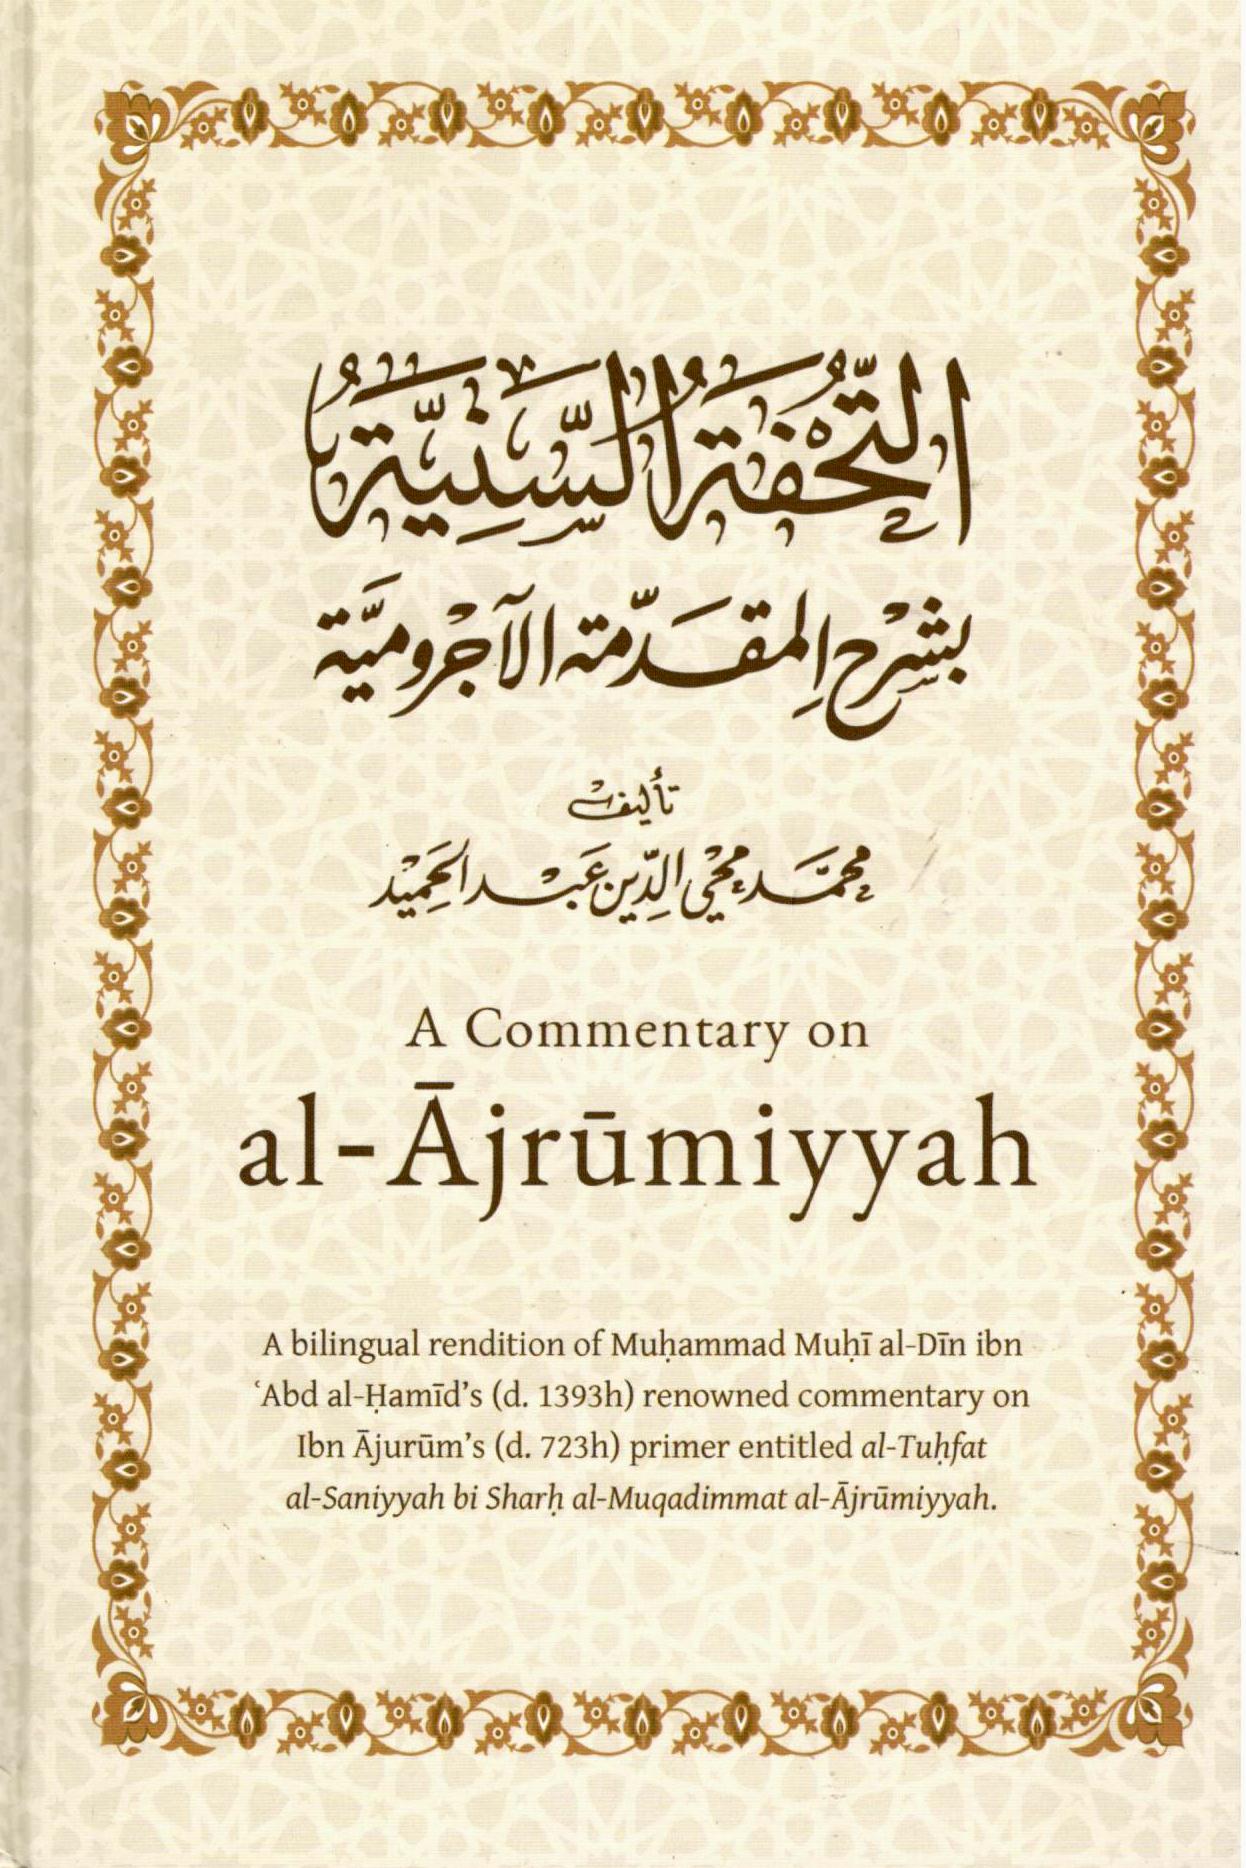 التُّحْفَةُ السَّنِيَّةُ
بشرح المقدّمة الآجروميَّة
تأليف
محمَّد محْيي الدِّين عَبْد الحَمِيْد
A Commentary on
al-Ājrūmiyyah
A bilingual rendition of Muḥammad Muḥī al-Dīn ibn
ʿAbd al-Ḥamīd’s (d. 1393h) renowned commentary on
Ibn Ājurūm’s (d. 723h) primer entitled al-Tuḥfat
al-Saniyyah bi Sharḥ al-Muqadimmat al-Ājrūmiyyah.